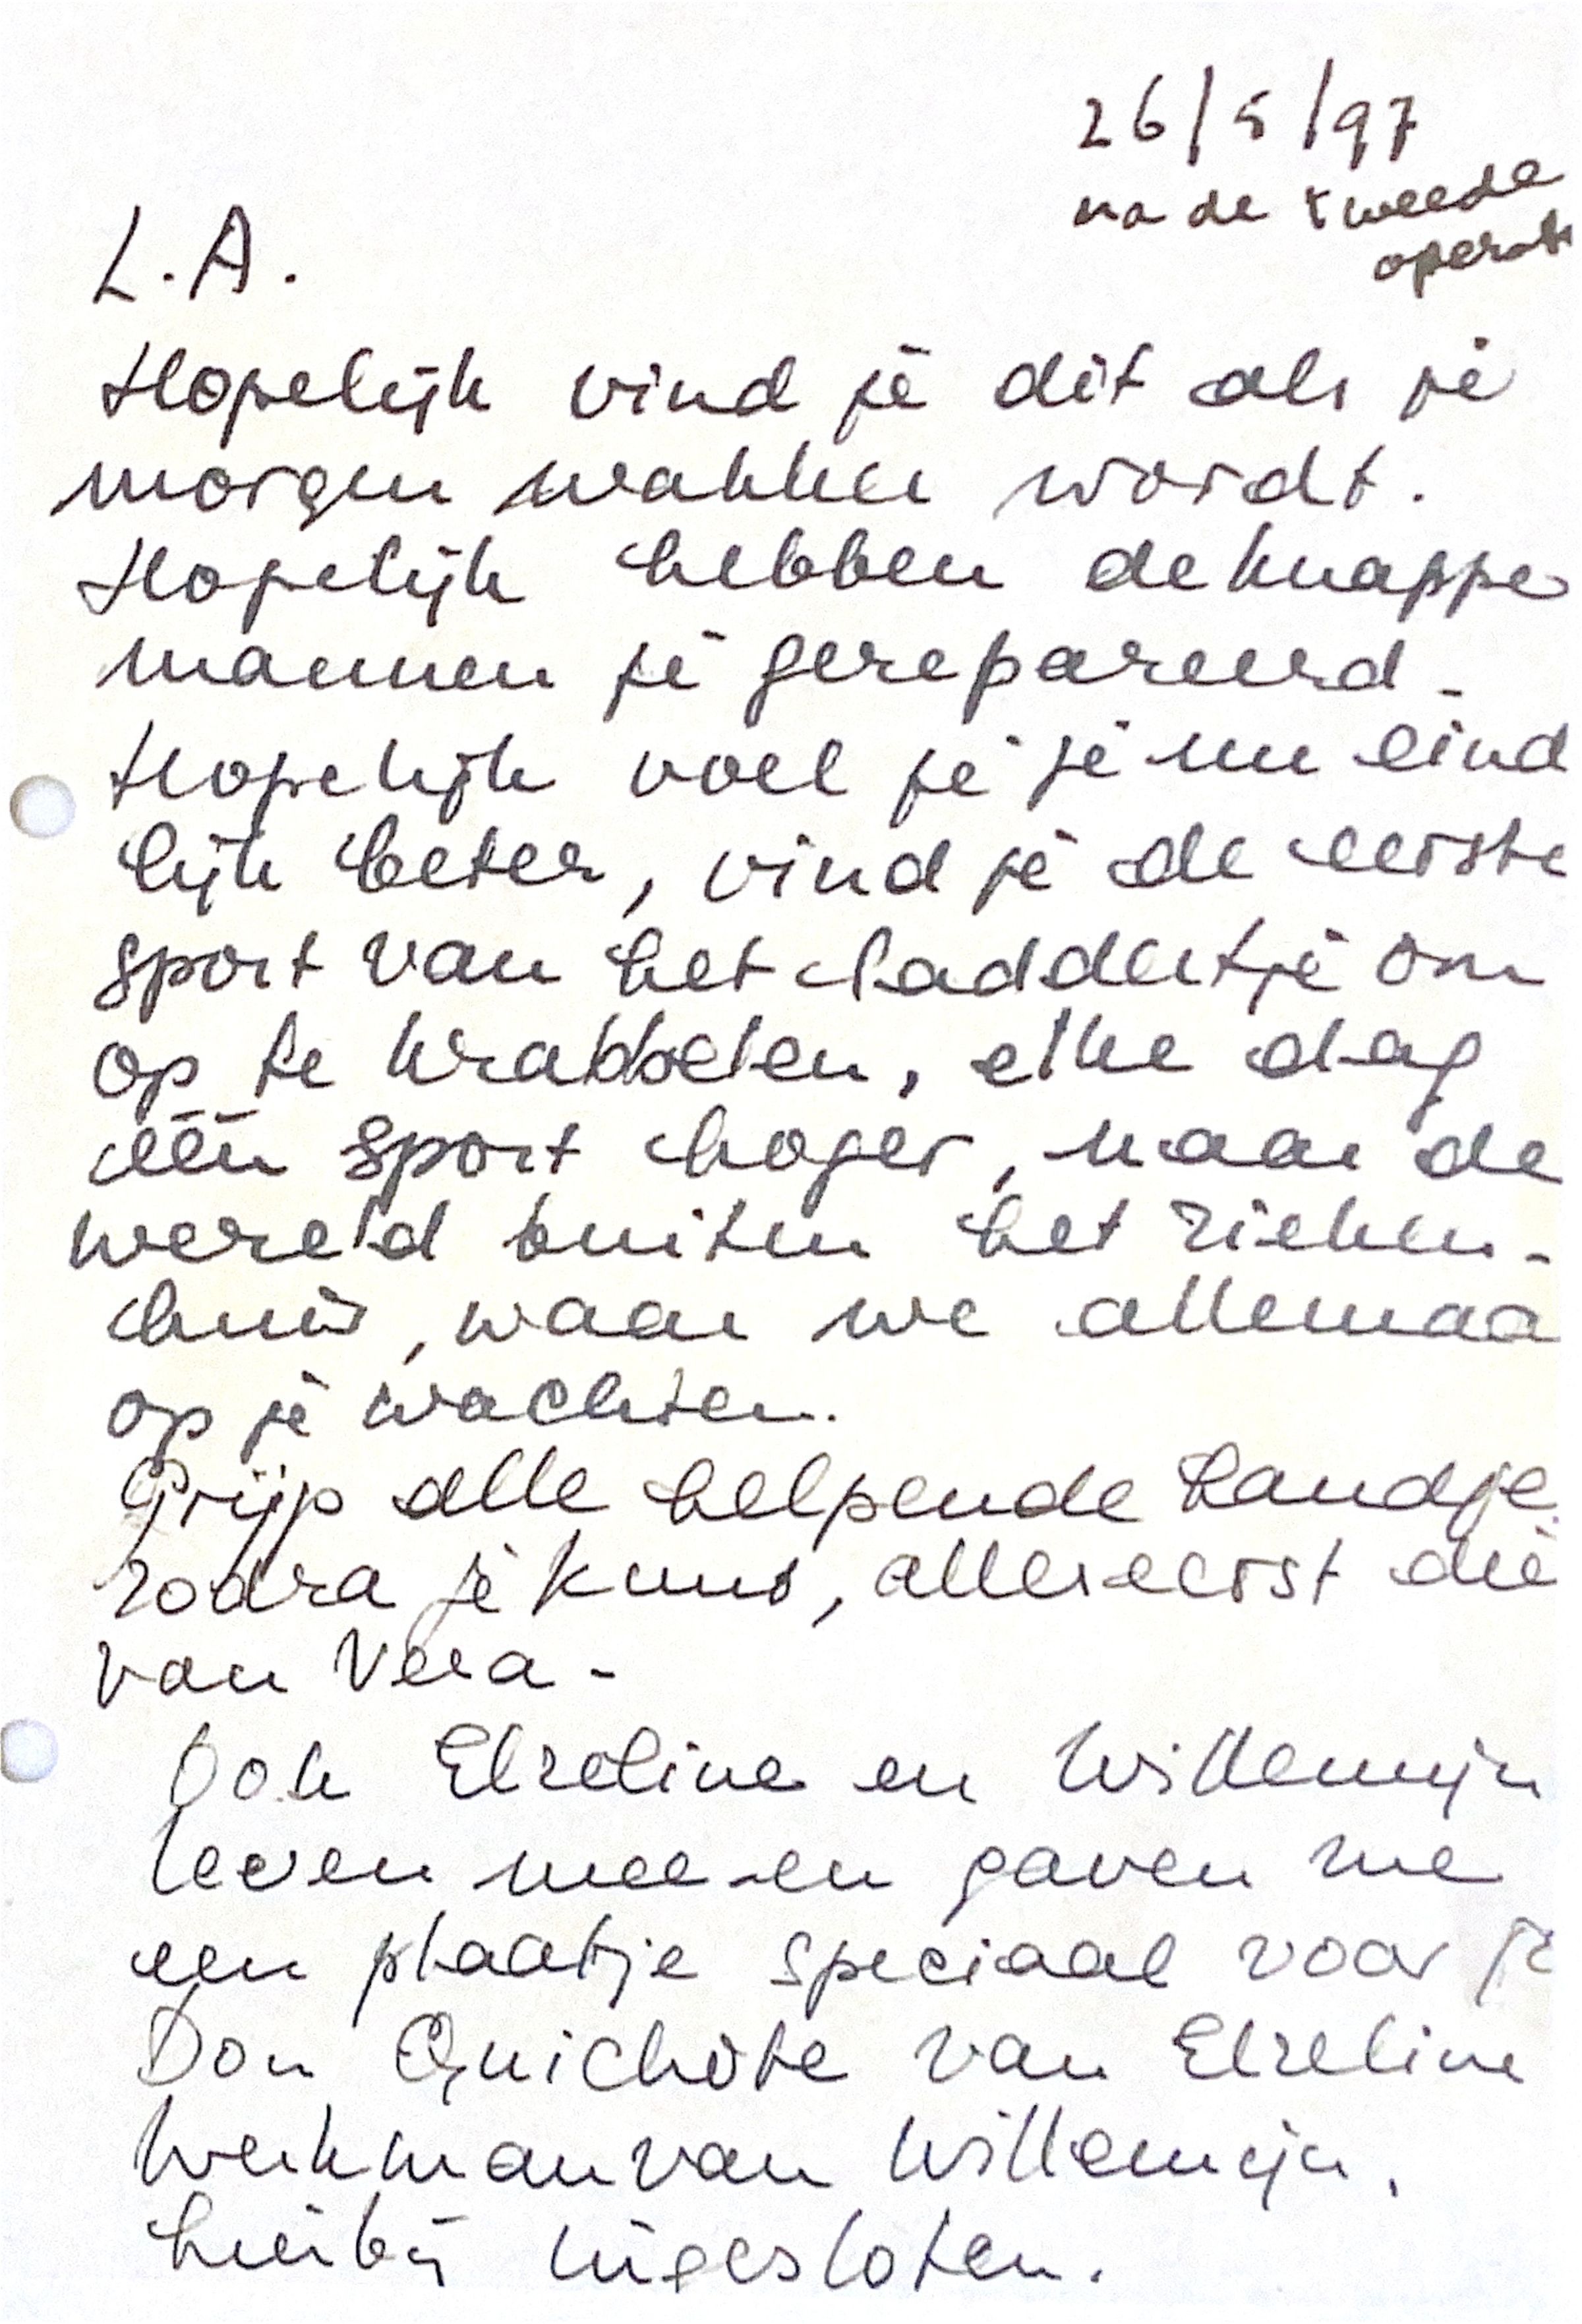 26/5/97
na de tweede
operat
L.A.
Hopelijk vind je dit als je
morgen wakker wordt.
Hopelijk hebben de knappe
mannen je gerepareerd.
Hopelijk voel je je nu eind
lijk beter, vind je de eerste
sport van het laddertje om
op te krabbelen, elke dag
één sport hoger, naar de
wereld buiten het zieken-
huis, waar we allemaa
op je wachten.
Grijp alle helpende handje
zodra je kunt, allereerst die
van Vera -
Ook Elzeline en Willemijn
leven mee en gaven me
een plaatje speciaal voor je
Don Quichote van Elzeline
Werkman van Willemijn,
hierbij ingesloten.